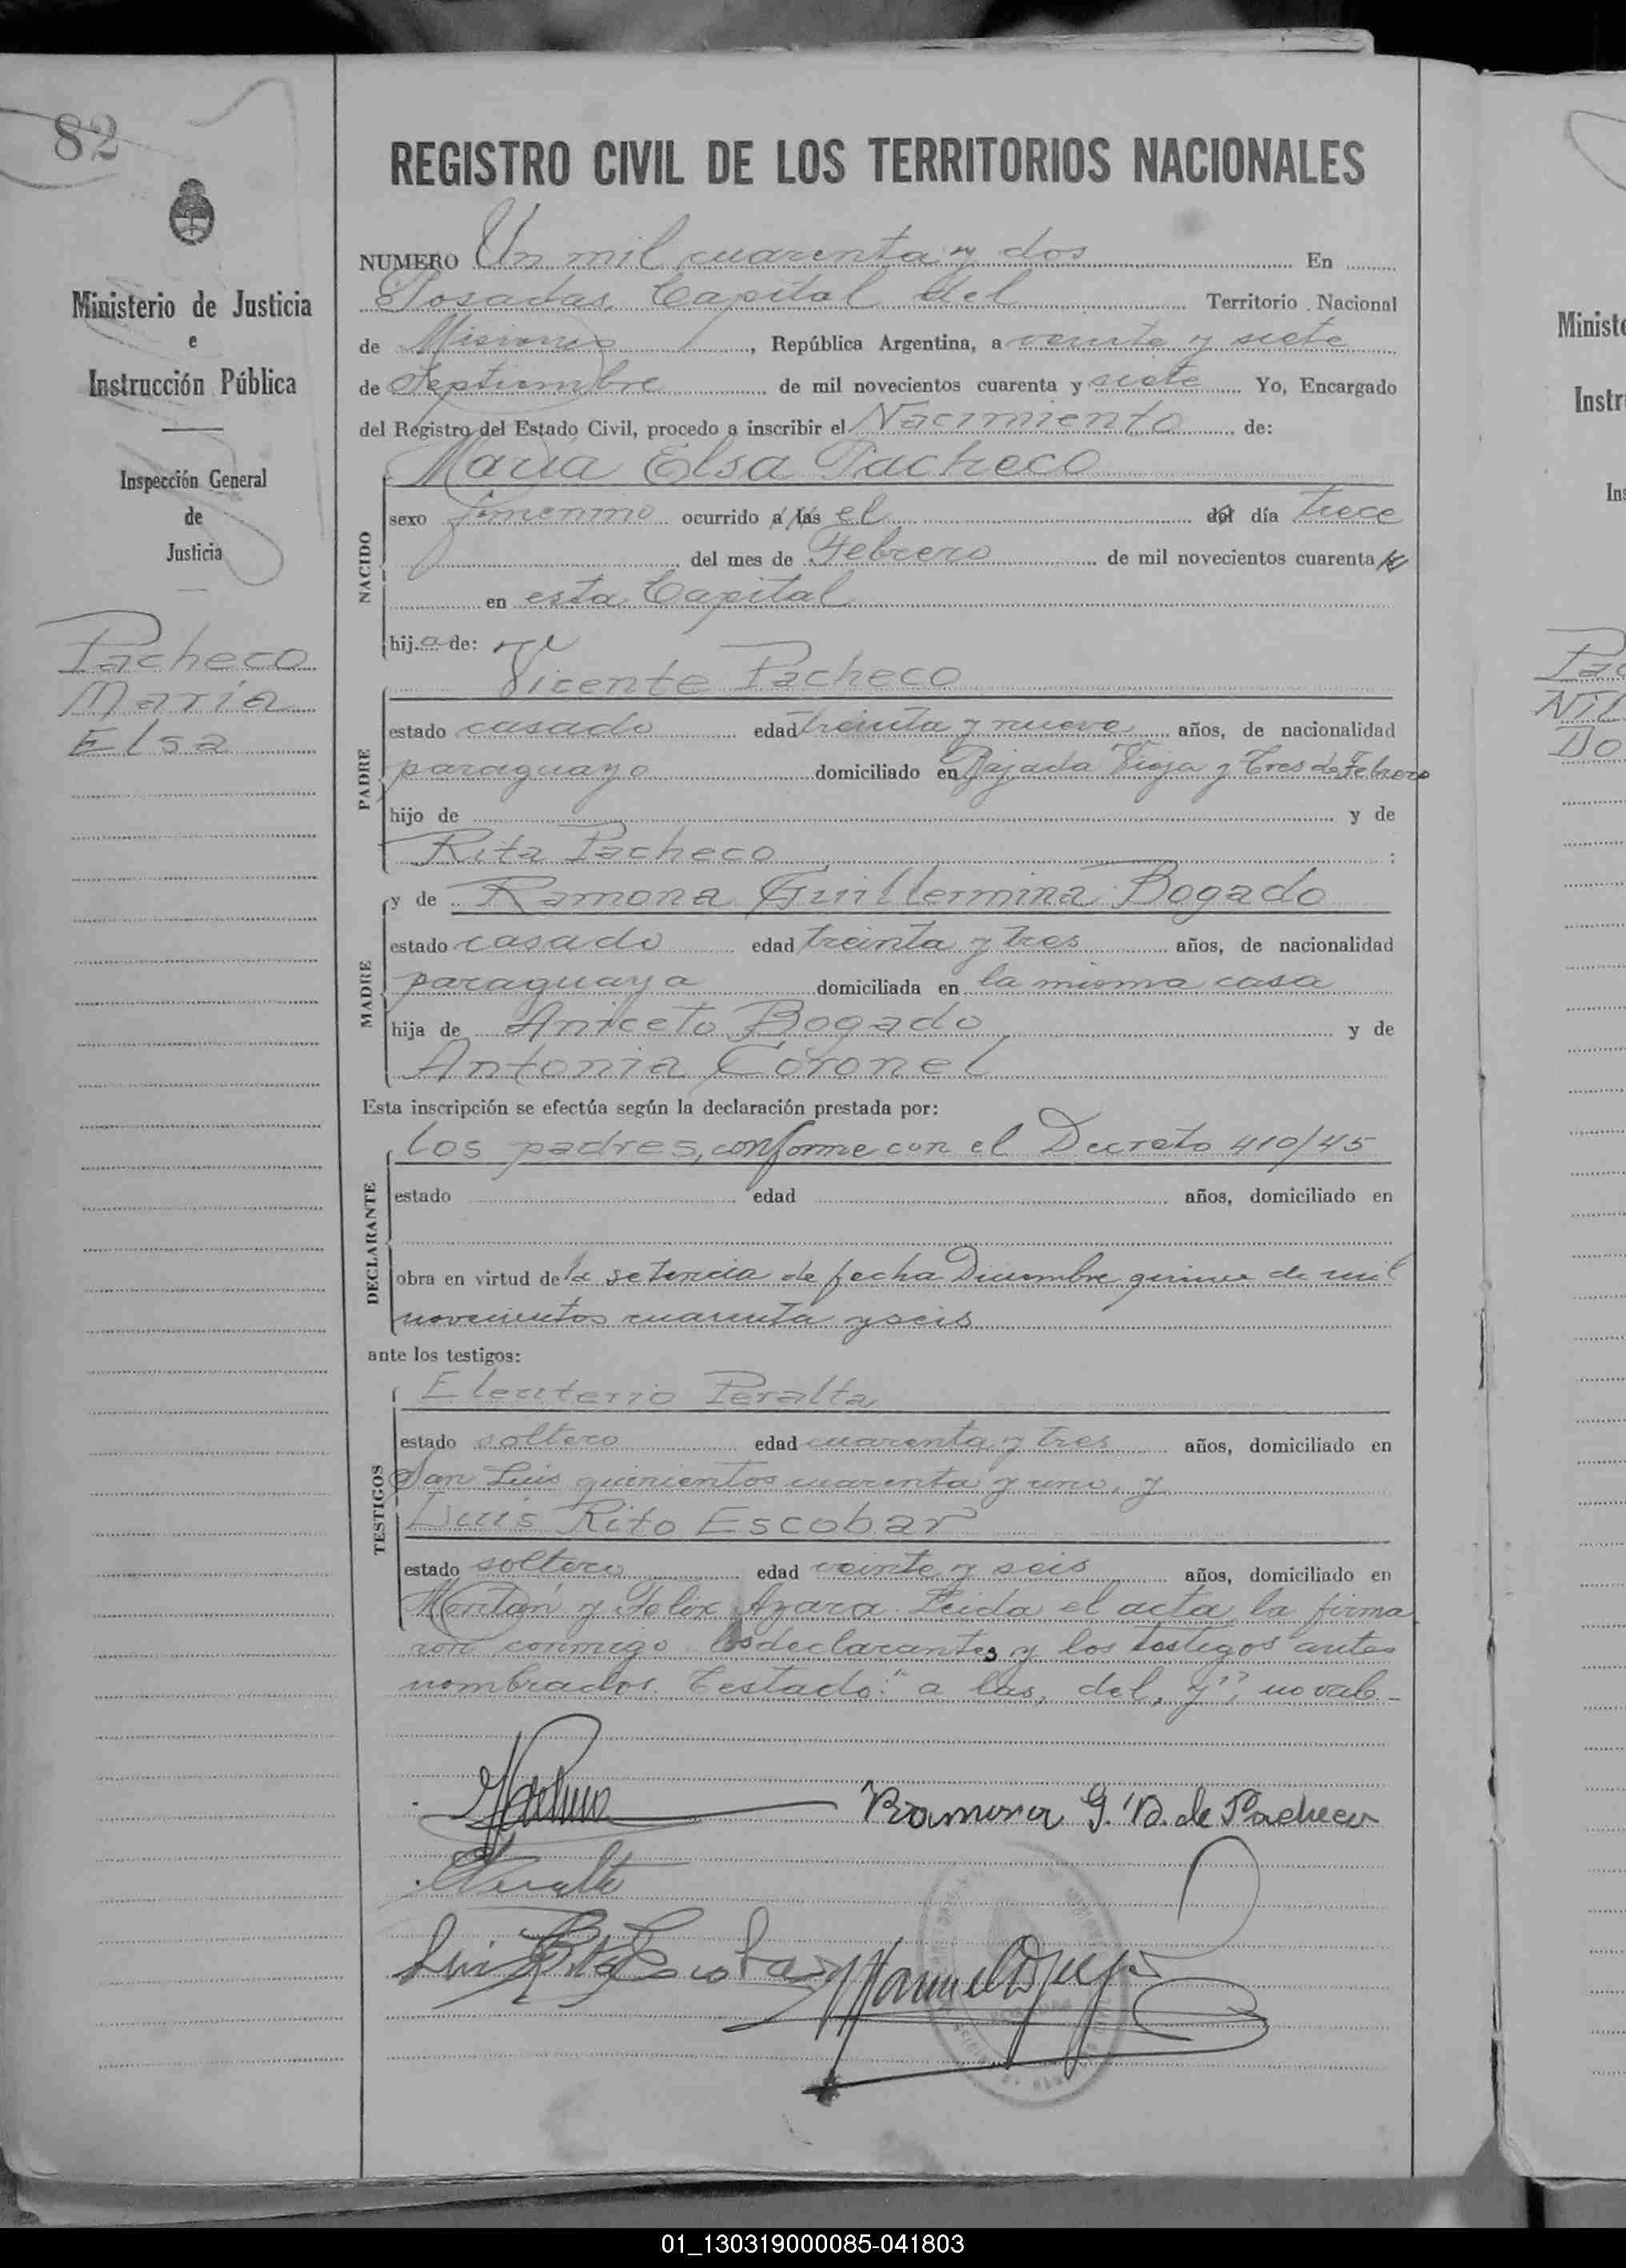 82
Ministerio de Justicia
e
Instrucción Pública
Inspección General
de
Justicia
Pacheco
María
Elsa
REGISTRO CIVIL DE LOS TERRITORIOS NACIONALES
NUMERO Un mil cuarenta y dos En
Posadas Capital del Territorio Nacional
de Misiones, República Argentina, a veinte y siete
de Septiembre de mil novecientos cuarenta y siete Yo, Encargado
del Registro del Estado Civil, procedo a inscribir el Nacimiento de:
NACIDO
María Elsa Pacheco
sexo femenino ocurrido a las el del día trece
del mes de Febrero de mil novecientos cuarenta y
en esta Capital
hija de:
PADRE
Vicente Pacheco
estado casado edad treinta y nueve años, de nacionalidad
paraguayo domiciliado en Bajada Vieja y Tres de Febrero
hijo de y de
Rita Pacheco :
MADRE
y de Ramona Guillermina Bogado
estado casado edad treinta y tres años, de nacionalidad
paraguaya domiciliada en la misma casa
hija de Aniceto Bogado y de
Antonia Coronel
Esta inscripción se efectúa según la declaración prestada por:
DECLARANTE
los padres, conforme con el Decreto 410/45
estado edad años, domiciliado en
obra en virtud de la setencia de fecha Diciembre quince de mil
novecientos cuarenta y seis
ante los testigos:
TESTIGOS
Eleuterio Peralta
estado soltero edad cuarenta y tres años, domiciliado en
San Luis quinientos cuarenta y uno, y
Luis Rito Escobar
estado soltero edad veinte y seis años, domiciliado en
y Felix Azara. Leida el acta, la firma
ron conmigo los declarantes y los testigos antes
nombrados. Testado: "a las, del, y", no vale-
Ramona G. B. de Pacheco
Peralta
Luis Rito Escobar
Ministe
Instr
Ins
Pac
Nil
Do
01_130319000085-041803